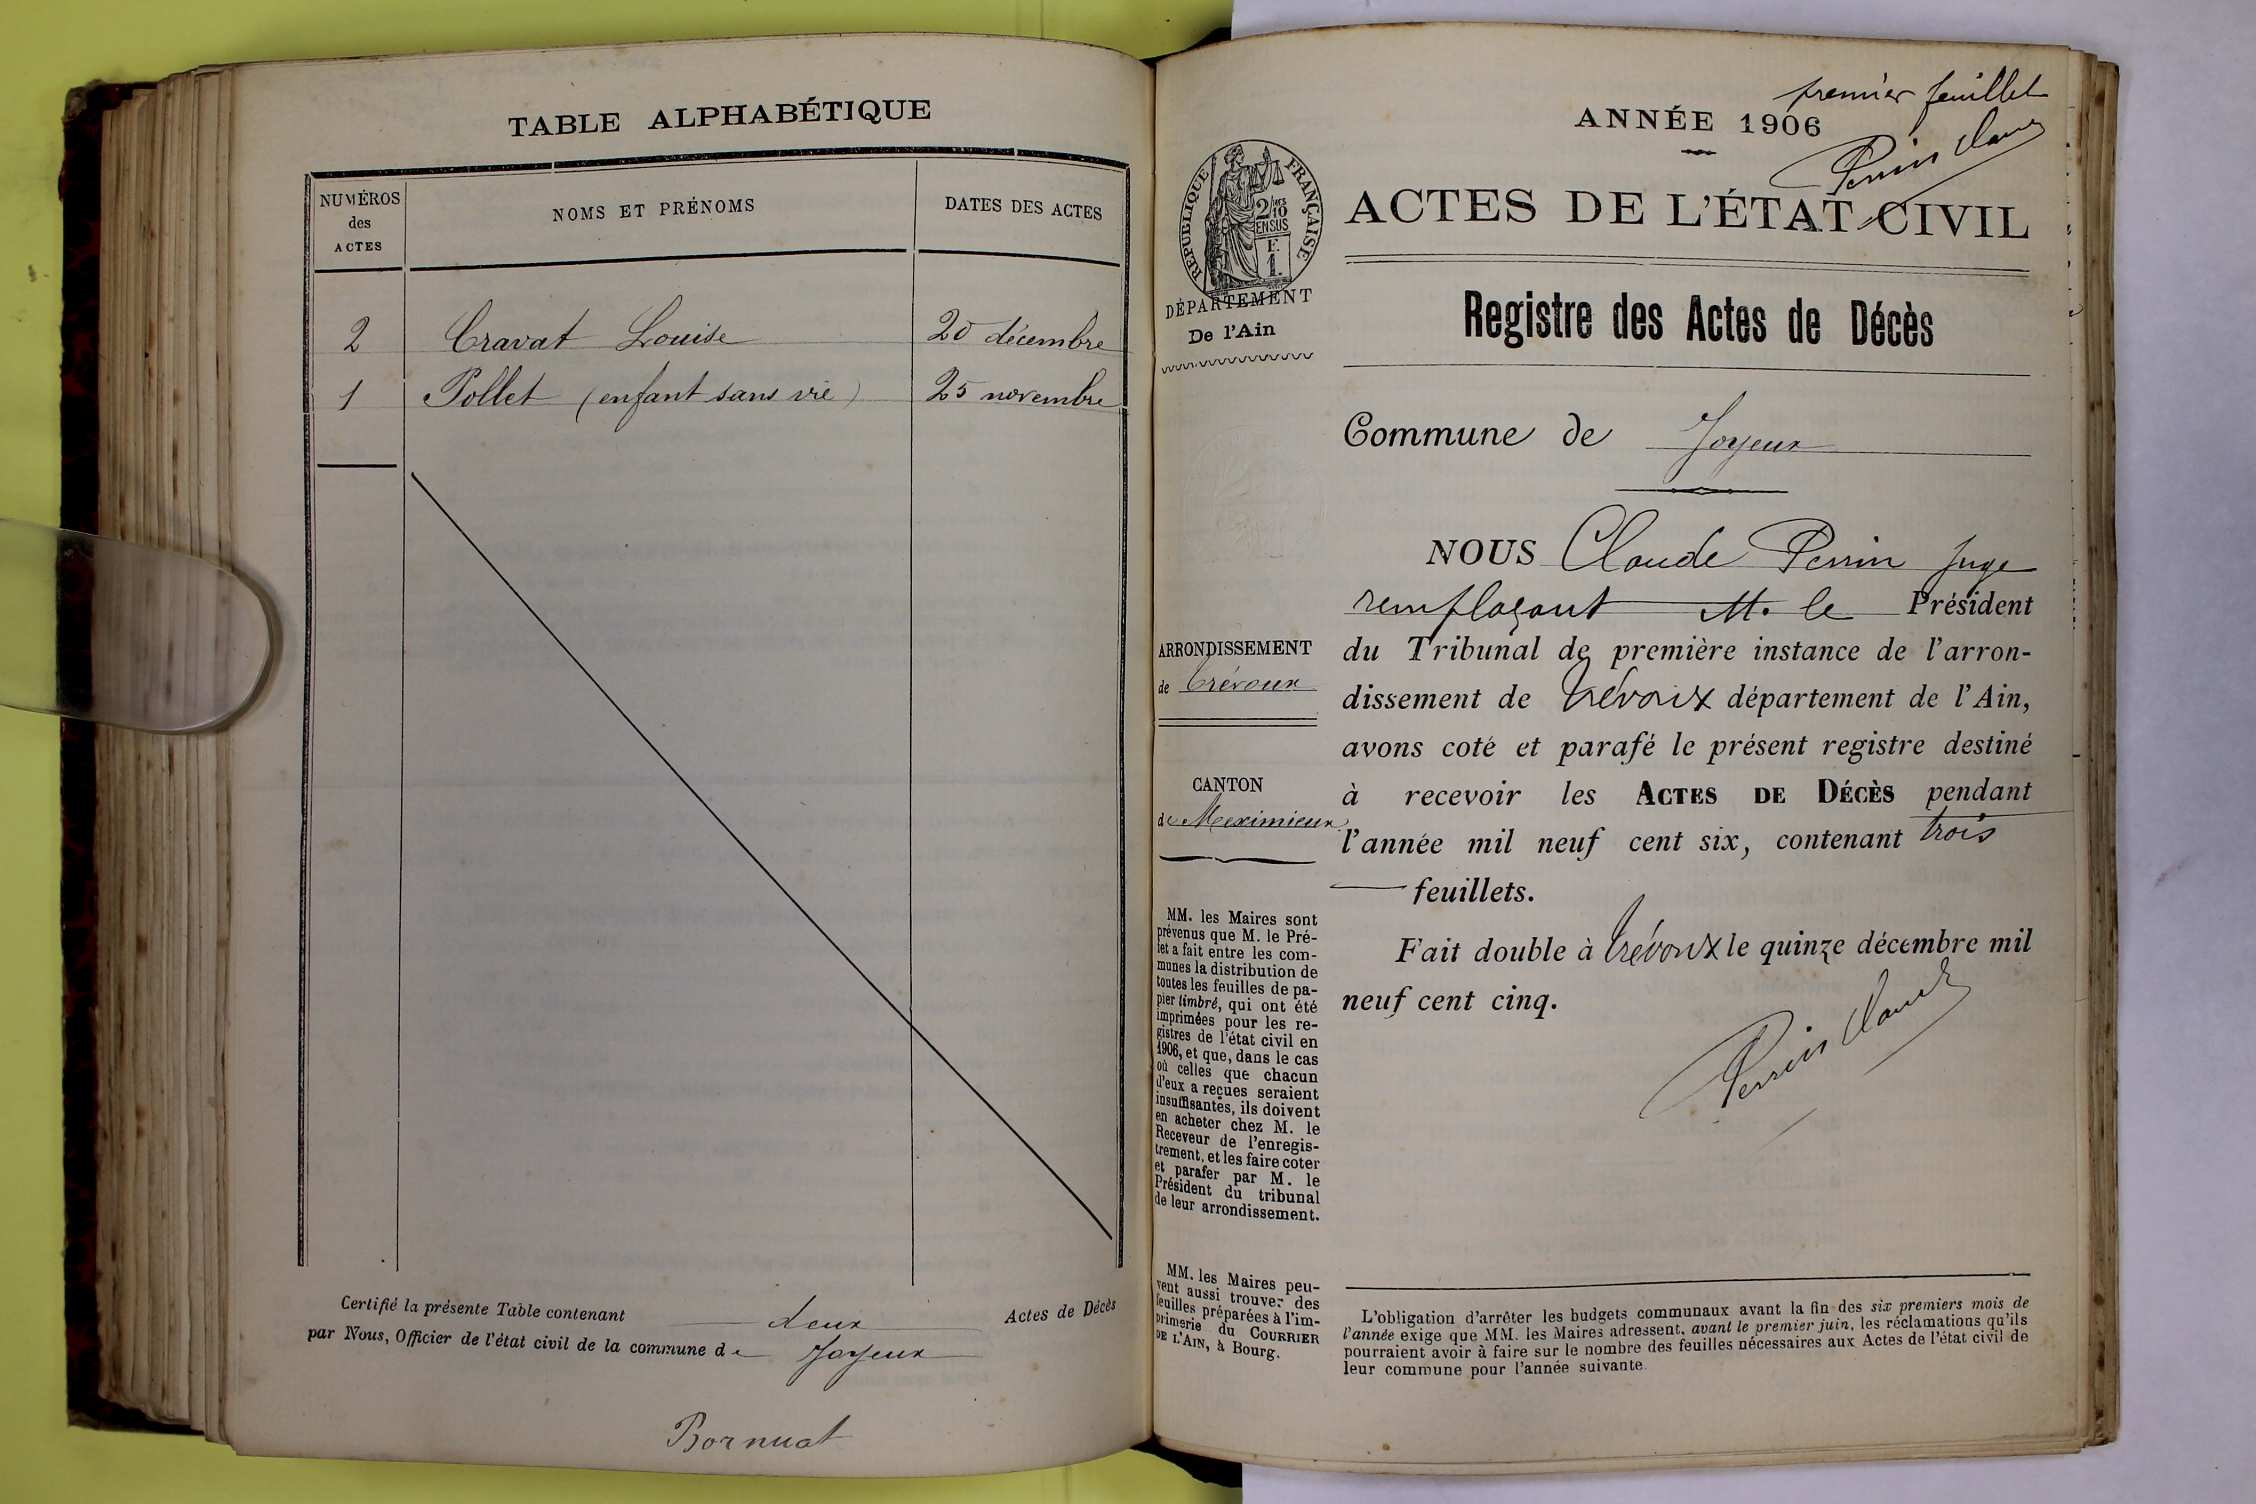 TABLE ALPHABÉTIQUE
NUMÉROS
des
ACTES
NOMS ET PRÉNOMS
DATES DES ACTES
2 Cravat Louise 20 décembre
1 Pollet (enfant sans vie) 25 novembre
Certifié la présente Table contenant deux Actes de Décès
par Nous, Officier de l'état civil de la commune de Joyeux
Bornuat
premier feuillet
ANNÉE 1906
Perrin Claude
RÉPUBLIQUE FRANÇAISE
2/10es
EN SUS
F.
1.
ACTES DE L'ÉTAT CIVIL
DÉPARTEMENT
De l'Ain
Registre des Actes de Décès
Commune de Joyeux
NOUS Claude Perrin Juge
remplaçant M. le Président
du Tribunal de première instance de l'arron-
dissement de Trévoux département de l'Ain,
avons coté et parafé le présent registre destiné
à recevoir les ACTES DE DÉCÈS pendant
l'année mil neuf cent six, contenant trois
feuillets.
Fait double à Trévoux le quinze décembre mil
neuf cent cinq.
Perrin Claude
ARRONDISSEMENT
de Trévoux
CANTON
de Meximieux
MM. les Maires sont
prévenus que M. le Pré-
fet a fait entre les com-
munes la distribution de
toutes les feuilles de pa-
pier timbré, qui ont été
imprimées pour les re-
gistres de l'état civil en
1906, et que, dans le cas
où celles que chacun
d'eux a reçues seraient
insuffisantes, ils doivent
en acheter chez M. le
Receveur de l'enregis-
trement, et les faire coter
et parafer par M. le
Président du tribunal
de leur arrondissement.
MM. les Maires peu-
vent aussi trouver des
feuilles préparées à l'im-
primerie du COURRIER
DE L'AIN, à Bourg.
L'obligation d'arrêter les budgets communaux avant la fin des six premiers mois de
l'année exige que MM. les Maires adressent, avant le premier juin, les réclamations qu'ils
pourraient avoir à faire sur le nombre des feuilles nécessaires aux Actes de l'état civil de
leur commune pour l'année suivante.